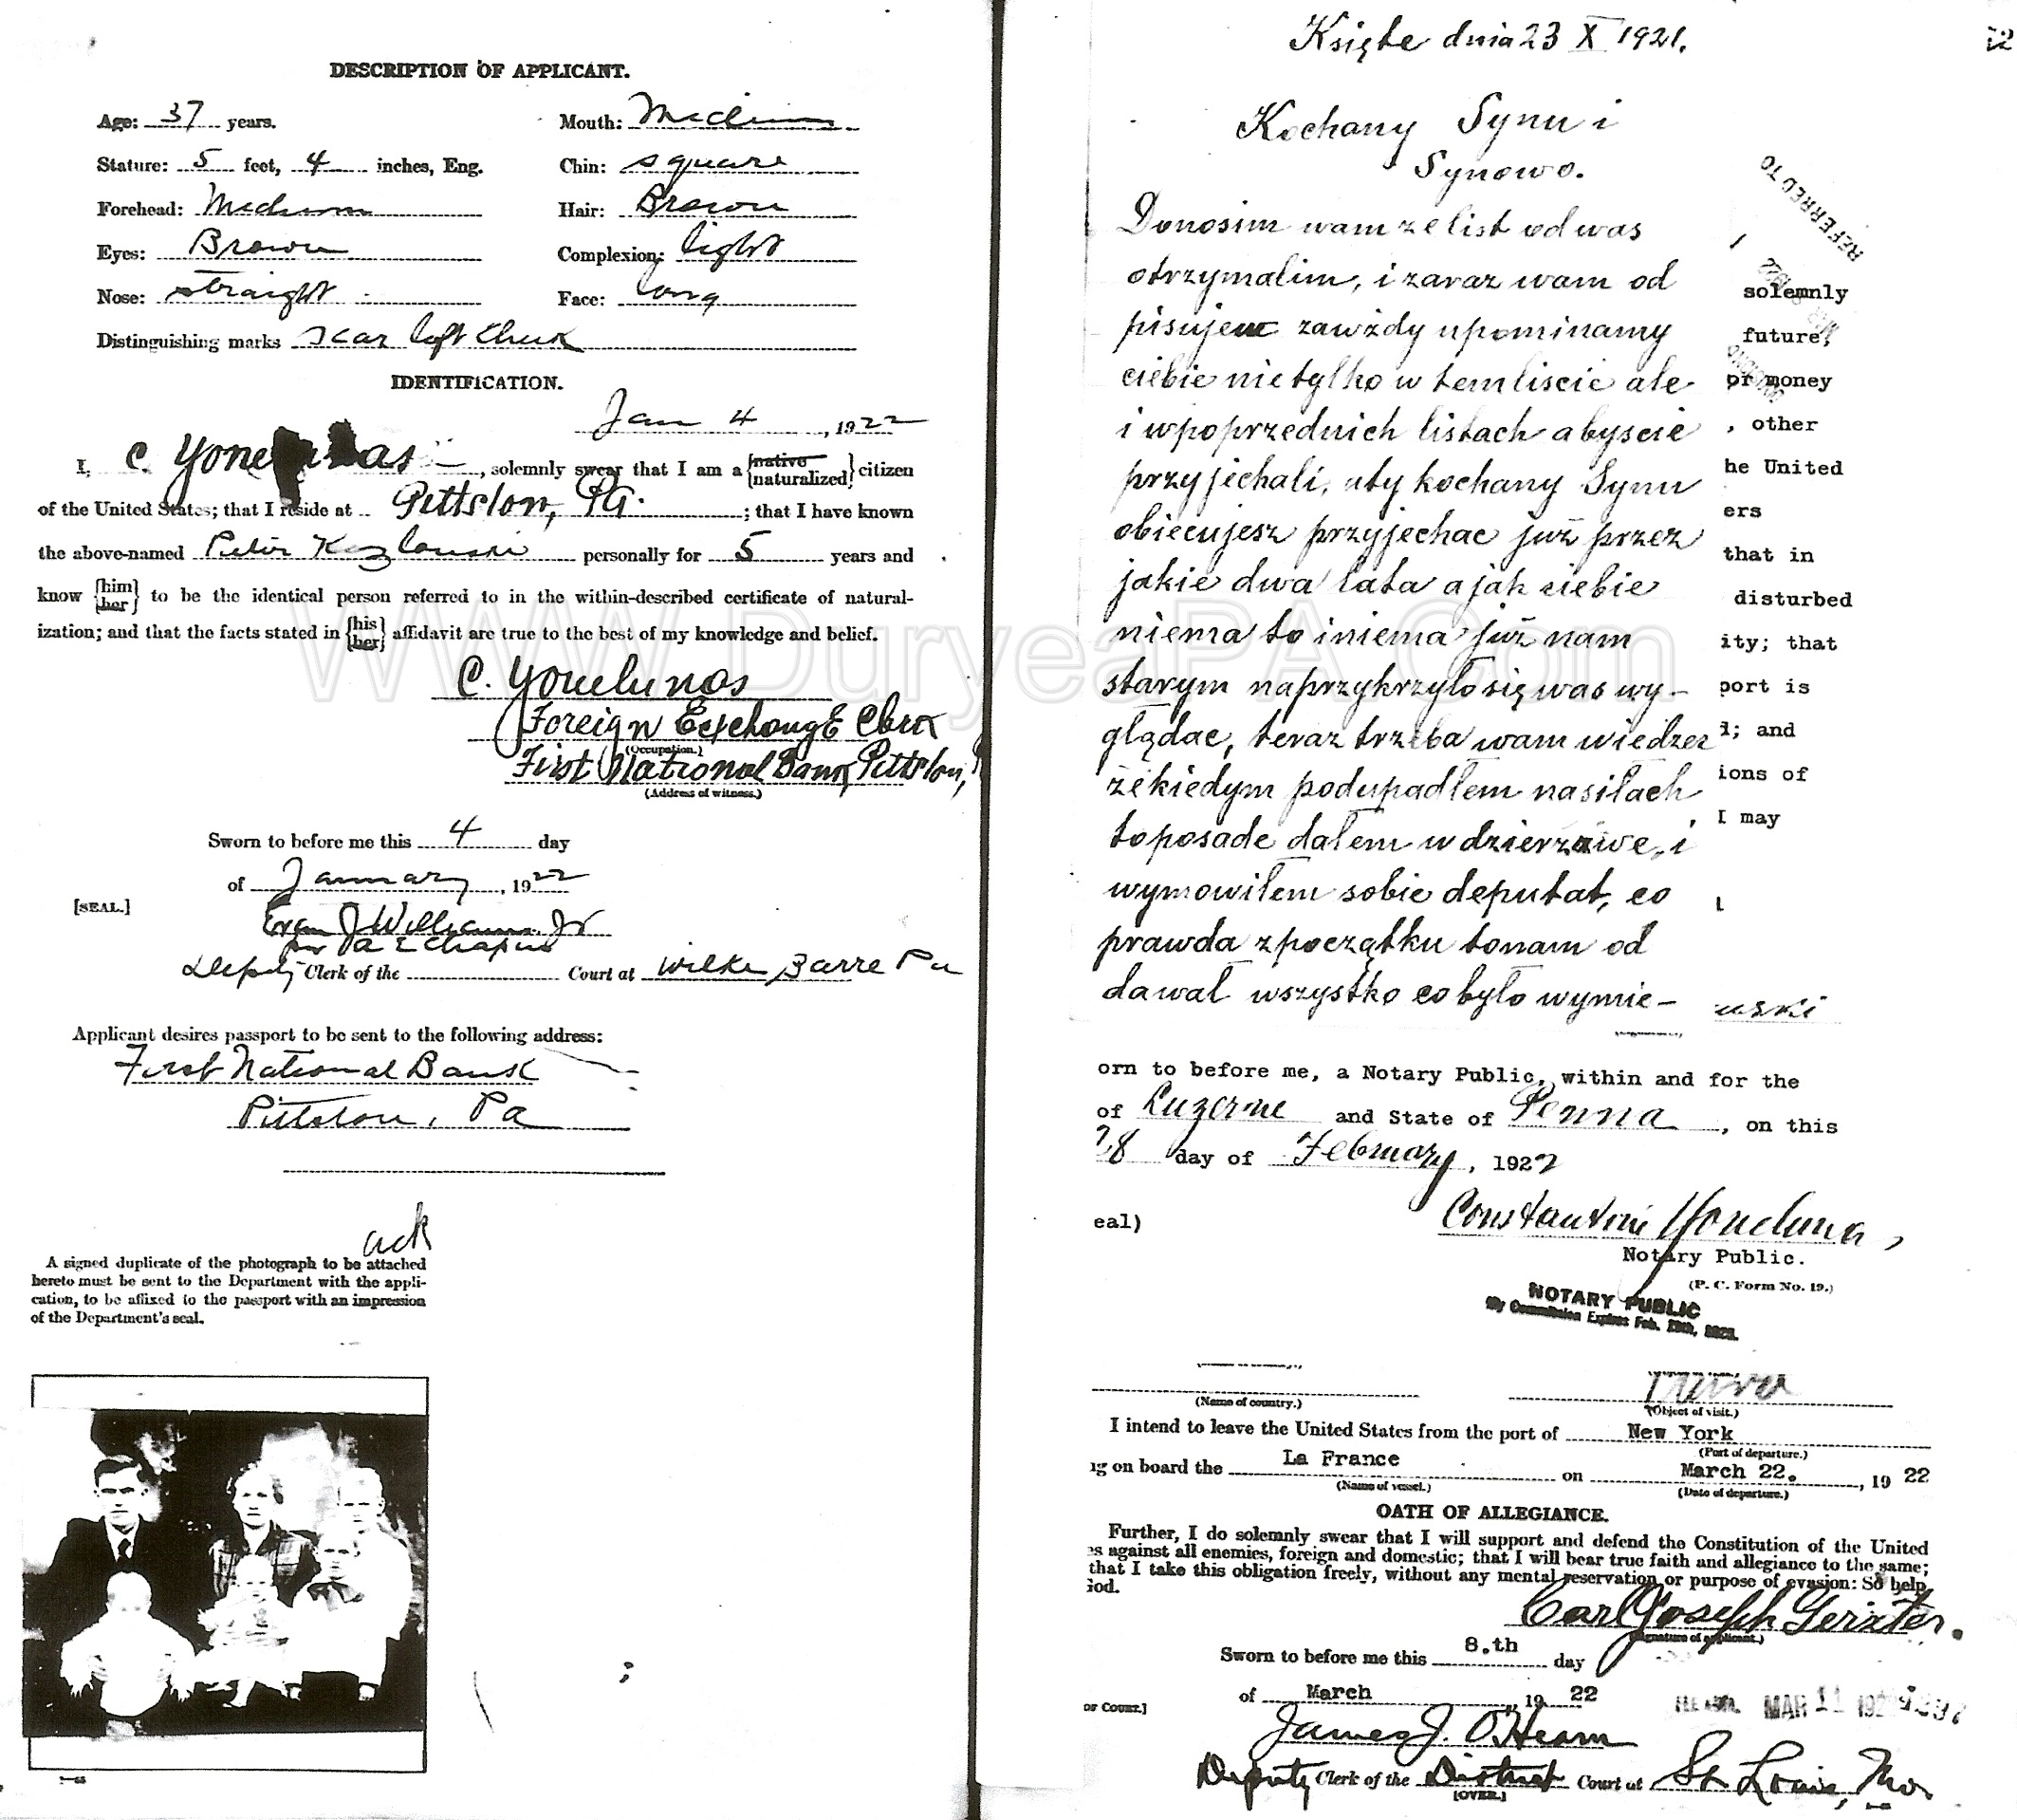 DESCRIPTION OF APPLICANT.
Age: 37 years.
Mouth: Medium
Stature: 5 feet, 4 inches, Eng.
Chin: square
Forehead: Medium
Hair: Brown
Eyes: Brown
Complexion: light
Nose: straight
Face: long
Distinguishing marks scar left cheek
IDENTIFICATION.
Jan 4, 1922
I, C. Yone as, solemnly swear that I am a {native naturalized} citizen
of the United States; that I reside at Pittston, Pa. ; that I have known
the above-named Peter Kozlowski personally for 5 years and
know {him her} to be the identical person referred to in the within-described certificate of natural-
ization; and that the facts stated in {his her} affidavit are true to the best of my knowledge and belief.
C. Yonelunas
Foreign Exchange Clerk
(Occupation.)
First National Bank, Pittston,
(Address of witness.)
Sworn to before me this 4 day
of January, 1922
[SEAL.]
Evan J Williams Jr
per A E Chapin
Deputy Clerk of the Court at Wilke Barre Pa
Applicant desires passport to be sent to the following address:
First National Bank
Pittston, Pa
ack
A signed duplicate of the photograph to be attached
hereto must be sent to the Department with the appli-
cation, to be affixed to the passport with an impression
of the Department's seal.
WWW.DuryeaPA.Com
Książe dnia 23 X 1921.
Kochany Synu i
Synowo.
Donosim wam ze list od was
otrzymalim, i zaraz wam od
pisujem zawżdy upominamy
ciebie nietylko w tem liscie ale
i wpoprzednich listach abyscie
przyjechali, aty kochany Synu
obiecujesz przyjechac już przez
jakie dwa lata ajak ciebie
niema to iniema już nam
starym naprzykrzyło się was wy-
glądac, teraz trzeba wam wiedzec
żekiedym podupadłem nasiłach
toposade dałem w dzierzawe, i
wymowiłem sobie deputat, co
prawda zpoczątku tonam od
dawał wszystko cobyło wymie-
REFERRED TO
solemnly
future,
or money
, other
he United
ers
that in
disturbed
ity; that
port is
d; and
ions of
I may
wski
orn to before me, a Notary Public, within and for the
of Luzerne and State of Penna, on this
28 day of February, 1922
eal)
Constantine Yonelunas
Notary Public.
(P. C. Form No. 19.)
NOTARY PUBLIC
My Commission Expires Feb.
(Name of country.)
(Object of visit.)
I intend to leave the United States from the port of New York
(Port of departure.)
ng on board the La France on March 22. , 19 22
(Name of vessel.)
(Date of departure.)
OATH OF ALLEGIANCE.
Further, I do solemnly swear that I will support and defend the Constitution of the United
es against all enemies, foreign and domestic; that I will bear true faith and allegiance to the same;
that I take this obligation freely, without any mental reservation or purpose of evasion: So help
God.
Carl Joseph
(Signature of applicant.)
Sworn to before me this 8.th day
of March, 19 22
OF COURT.]
MAR 11 192
James J. O'Hearn
Deputy Clerk of the District Court at St Louis, Mo
[OVER.]